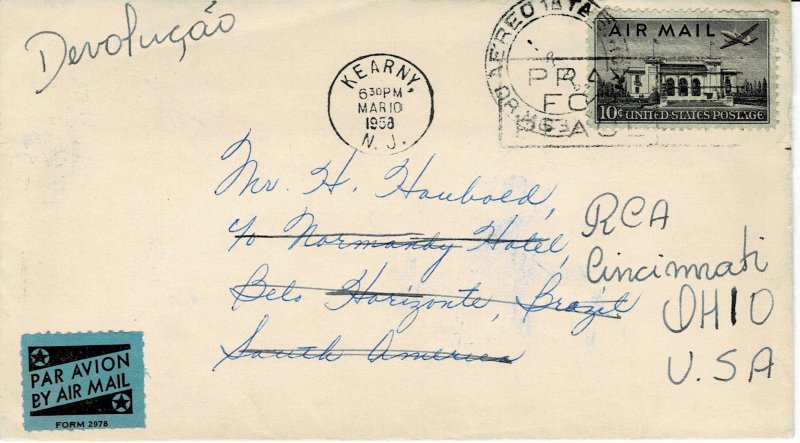 Devolução
KEARNY,
6 30 PM
MAR 10
1958
N. J.
AEREO
PRAY
FOR
PEACE
AIR MAIL
10¢ UNITED STATES POSTAGE
Mr. H. Haubold,
c/o Normandy Hotel,
Belo Horizonte, Brazil
South America
RCA
Cincinnati
OHIO
U.S.A
PAR AVION
BY AIR MAIL
FORM 2978